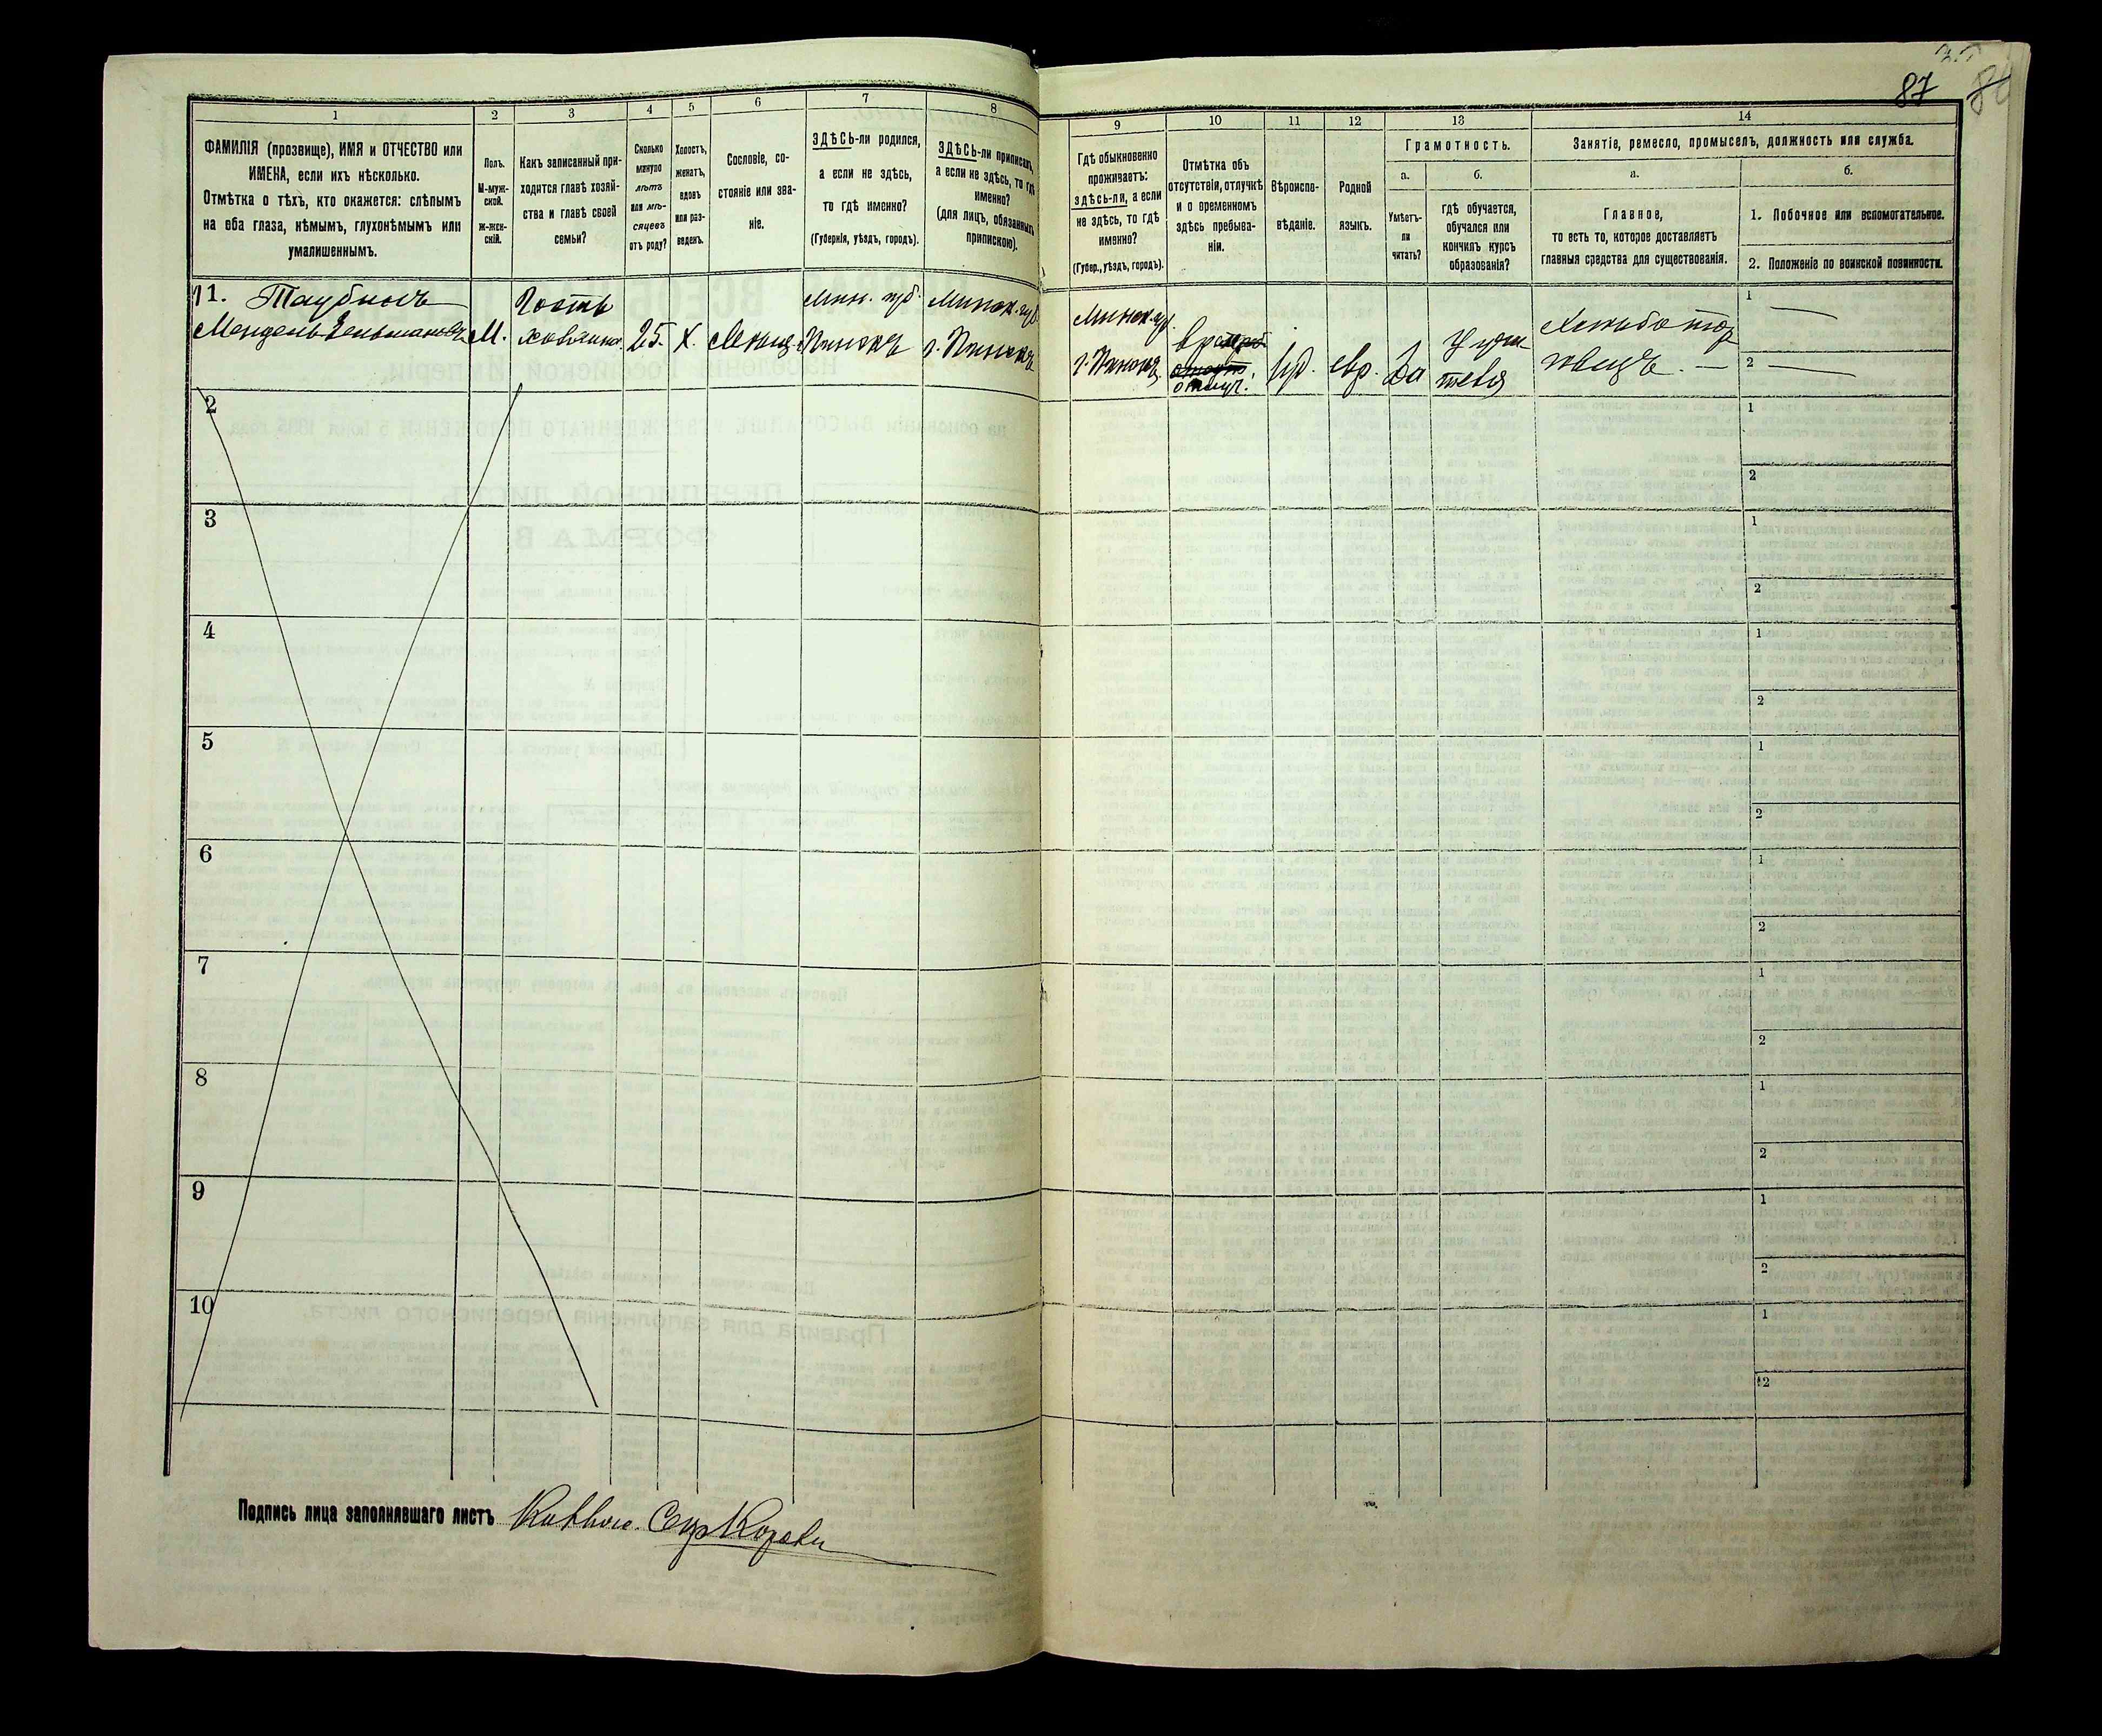 87
1
ФАМИЛІЯ (прозвище), ИМЯ и ОТЧЕСТВО или
ИМЕНА, если ихъ нѣсколько.
Отмѣтка о тѣхъ, кто окажется: слѣпымъ
на оба глаза, нѣмымъ, глухонѣмымъ или
умалишеннымъ.
2
Полъ.
М-муж-
ской.
Ж-жен-
скій.
3
Какъ записанный при-
ходится главѣ хозяй-
ства и главѣ своей
семьи?
4
Сколько
минуло
лѣтъ
или мѣ-
сяцевъ
отъ роду?
5
Холостъ,
женатъ,
вдовъ
или раз-
веденъ.
6
Сословіе, со-
стояніе или зва-
ніе.
7
ЗДѢСЬ-ли родился,
а если не здѣсь,
то гдѣ именно?
(Губернія, уѣздъ, городъ).
8
ЗДѢСЬ-ли приписанъ,
а если не здѣсь, то гдѣ
именно?
(для лицъ, обязанныхъ
припискою).
9
Гдѣ обыкновенно
проживаетъ:
здѣсь-ли, а если
не здѣсь, то гдѣ
именно?
(Губер., уѣздъ, городъ).
10
Отмѣтка объ
отсутствіи, отлучкѣ
и о временномъ
здѣсь пребыва-
ніи.
11
Вѣроиспо-
вѣданіе.
12
Родной
языкъ.
13
Грамотность.
а.
Умѣетъ-
ли
читать?
б.
гдѣ обучается,
обучался или
кончилъ курсъ
образованія?
14
Занятіе, ремесло, промыселъ, должность или служба.
а.
Главное,
то есть то, которое доставляетъ
главныя средства для существованія.
б.
1. Побочное или вспомогательное.
2. Положеніе по воинской повинности.
11. Таубкинъ
Мендель
М.
Гость
хозяина
25.
Х.
Мѣщ.
Мин. губ.
Пинскъ
Минск. губ.
г. Пинскъ
Минск. губ.
г. Пинскъ
іуд.
евр.
Да
У учи
теля
Хлѣботор
говецъ. —
1 —
2 —
2
1
2
3
1
2
4
1
2
5
1
2
6
1
2
7
1
2
8
1
2
9
1
2
10
1
2
Подпись лица заполнявшаго листъ